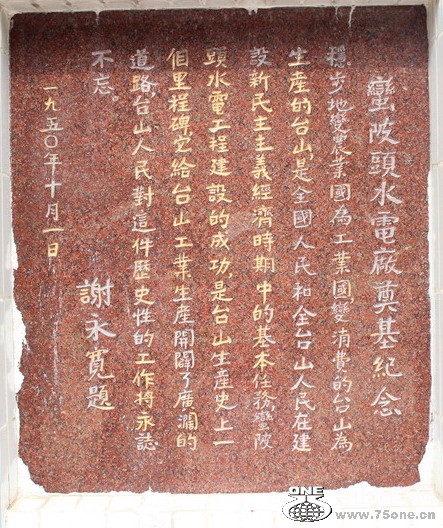 蠻陂頭水電廠奠基紀念
穩步地變農業國為工業國,變消費的台山為
生產的台山,是全國人民和全台山人民在建
設新民主主義經濟時期中的基本任務,蠻陂
頭水電工程建設的成功,是台山生產史上一
個里程碑,它給台山工業生產開闢了廣濶的
道路,台山人民對這件歷史性的工作將永誌
不忘。
一九五〇年十月一日
謝永寬題
ONE
www.75one.cn